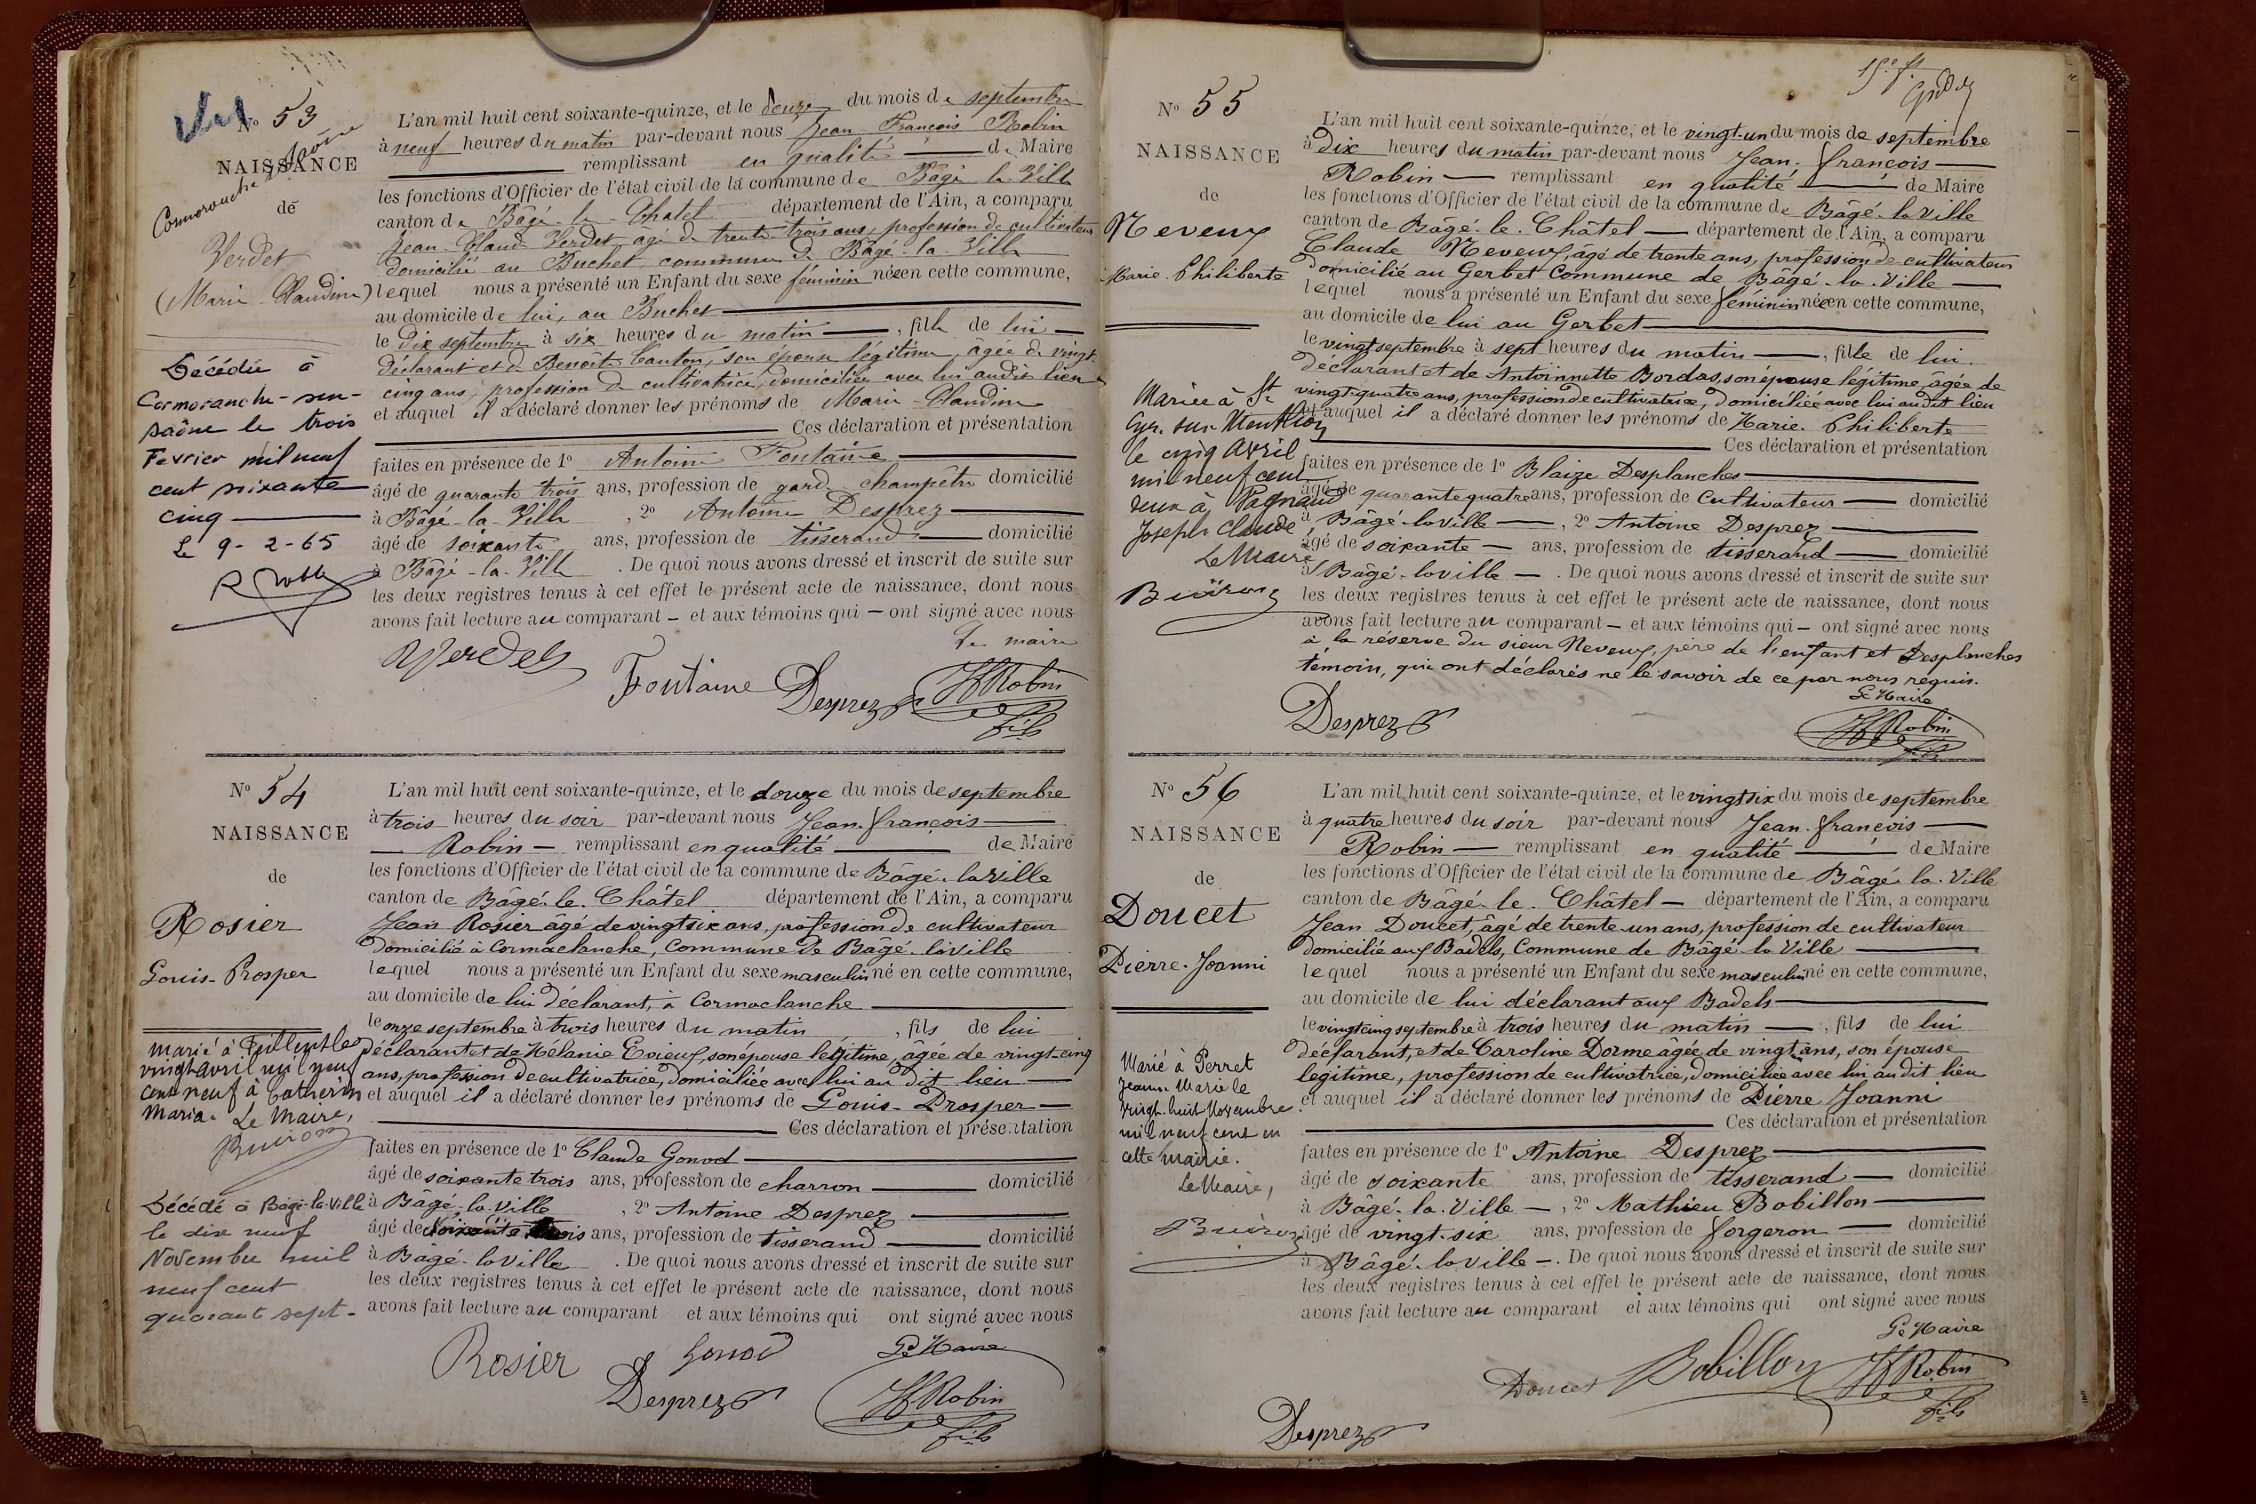 No 53
NAISSANCE
de
Verdet
(Marie Claudine)
Cormoranche s/ Saône
Décédée à
Cormoranche-sur-
saône le trois
Fevrier mil neuf
cent soixante
cinq
Le 9-2-65
L'an mil huit cent soixante-quinze, et le douze du mois de septembre
à neuf heures du matin par-devant nous Jean François Robin
remplissant en qualité de Maire
les fonctions d'Officier de l'état civil de la commune de Bâgé la Ville
canton de Bâgé-le-Chatel département de l'Ain, a comparu
Jean Claude Verdet âgé de trente-trois ans, profession de cultivateur
domicilié au Buchet commune de Bâgé-la-Ville
lequel nous a présenté un Enfant du sexe féminin née en cette commune,
au domicile de lui, au Buchet
le dix septembre à six heures du matin , fille de lui
déclarant et de Benoîte Canton, son épouse légitime, âgée de vingt
cinq ans, profession de cultivatrice, domiciliée avec lui audit lieu
et auquel il a déclaré donner les prénoms de Marie-Claudine
Ces déclaration et présentation
faites en présence de 1o Antoine Fontaine
âgé de quarante trois ans, profession de garde champêtre domicilié
à Bâgé-la-Ville , 2o Antoine Desprez
âgé de soixante ans, profession de tisserand domicilié
à Bâgé-la-Ville . De quoi nous avons dressé et inscrit de suite sur
les deux registres tenus à cet effet le présent acte de naissance, dont nous
avons fait lecture au comparant – et aux témoins qui – ont signé avec nous
Le maire
Verdet
Fontaine Desprez JF Robin
fils
No 54
NAISSANCE
de
Rosier
Louis-Prosper
marié à
vingt avril mil neuf
cent neuf à Catherin
Maria. Le Maire,
Buiron
Décédé à Bâgé-la-Ville
le dix neuf
Novembre mil
neuf cent
quarante sept-
L'an mil huit cent soixante-quinze, et le douze du mois de septembre
à trois heures du soir par-devant nous Jean-françois
Robin – remplissant en qualité de Maire
les fonctions d'Officier de l'état civil de la commune de Bâgé-la ville
canton de Bâgé-le-Châtel département de l'Ain, a comparu
Jean Rosier âgé de vingt six ans, profession de cultivateur
domicilié à Cormaclanche, Commune de Bâgé-la ville
lequel nous a présenté un Enfant du sexe masculin né en cette commune,
au domicile de lui déclarant, à Cormaclanche
le onze septembre à trois heures du matin , fils de lui
déclarant et de Mélanie Evieux, son épouse légitime, âgée de vingt-cinq
ans, profession de cultivatrice, domiciliée avec lui au dit lieu
et auquel il a déclaré donner les prénoms de Louis-Prosper
Ces déclaration et présentation
faites en présence de 1o Claude Gonod
âgé de soixante trois ans, profession de charron domicilié
à Bâgé-la ville , 2o Antoine Desprez
âgé de soixante ans, profession de tisserand domicilié
à Bâgé-la ville . De quoi nous avons dressé et inscrit de suite sur
les deux registres tenus à cet effet le présent acte de naissance, dont nous
avons fait lecture au comparant et aux témoins qui ont signé avec nous
Rosier Gonod Le Maire
Desprez JF Robin
fils
No 55
NAISSANCE
de
Neveux
Marie-Philiberte
Mariée à St
Cyr-sur-Menthon
le cinq Avril
mil neuf cent
deux à Pagnaud
Joseph Claude
Le Maire
Buiron
L'an mil huit cent soixante-quinze, et le vingt-un du mois de septembre
à dix heures du matin par-devant nous Jean-françois
Robin – remplissant en qualité de Maire
les fonctions d'Officier de l'état civil de la commune de Bâgé-la Ville
canton de Bâgé-le-Châtel – département de l'Ain, a comparu
Claude Neveux, âgé de trente ans, profession de cultivateur
domicilié au Gerbet Commune de Bâgé-la-Ville
lequel nous a présenté un Enfant du sexe féminin née en cette commune,
au domicile de lui au Gerbet
le vingt septembre à sept heures du matin , fille de lui
déclarant et de Antoinette Bordas, son épouse légitime, âgée de
vingt-quatre ans, profession de cultivatrice, domiciliée avec lui au dit lieu
et auquel il a déclaré donner les prénoms de Marie-Philiberte
Ces déclaration et présentation
faites en présence de 1o Blaize Desplanches
âgé de quarante quatre ans, profession de Cultivateur domicilié
à Bâgé-la ville , 2o Antoine Desprez
âgé de soixante ans, profession de tisserand domicilié
à Bâgé-la ville . De quoi nous avons dressé et inscrit de suite sur
les deux registres tenus à cet effet le présent acte de naissance, dont nous
avons fait lecture au comparant – et aux témoins qui – ont signé avec nous
à la réserve du sieur Neveux, père de l'enfant et Desplanches
témoin, qui ont déclarés ne le savoir de ce par nous requis.
Le Maire
Desprez JF Robin
fils
No 56
NAISSANCE
de
Doucet
Pierre-Joanni
Marié à Perret
Jeanne Marie le
vingt-huit Novembre
mil neuf cent en
cette Mairie.
Le Maire,
Buiron
L'an mil huit cent soixante-quinze, et le vingt six du mois de septembre
à quatre heures du soir par-devant nous Jean-françois
Robin – remplissant en qualité de Maire
les fonctions d'Officier de l'état civil de la commune de Bâgé-la-Ville
canton de Bâgé-le-Châtel – département de l'Ain, a comparu
Jean Doucet, âgé de trente-un ans, profession de cultivateur
domicilié aux Badels, Commune de Bâgé-la Ville
lequel nous a présenté un Enfant du sexe masculin né en cette commune,
au domicile de lui déclarant aux Badels
le vingt cinq septembre à trois heures du matin , fils de lui
déclarant, et de Caroline Dorme âgée de vingt ans, son épouse
légitime, profession de cultivatrice, domiciliée avec lui au dit lieu
et auquel il a déclaré donner les prénoms de Pierre Joanni
Ces déclaration et présentation
faites en présence de 1o Antoine Desprez
âgé de soixante ans, profession de tisserand domicilié
à Bâgé-la-Ville –, 2o Mathieu Bobillon
âgé de vingt-six ans, profession de forgeron domicilié
à Bâgé-la ville –. De quoi nous avons dressé et inscrit de suite sur
les deux registres tenus à cet effet le présent acte de naissance, dont nous
avons fait lecture au comparant et aux témoins qui ont signé avec nous
Le Maire
Doucet Bobillon JF Robin
fils
Desprez